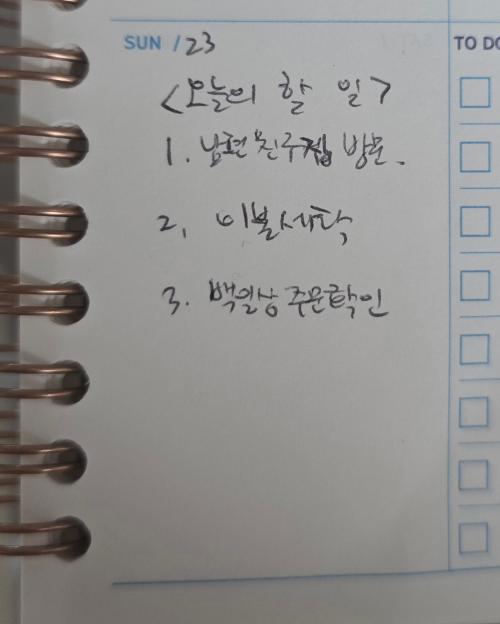 SUN / 23
TO DO
<오늘의 할 일>
1. 남편친구집 방문.
2, 이불세탁
3. 백일상 주문확인